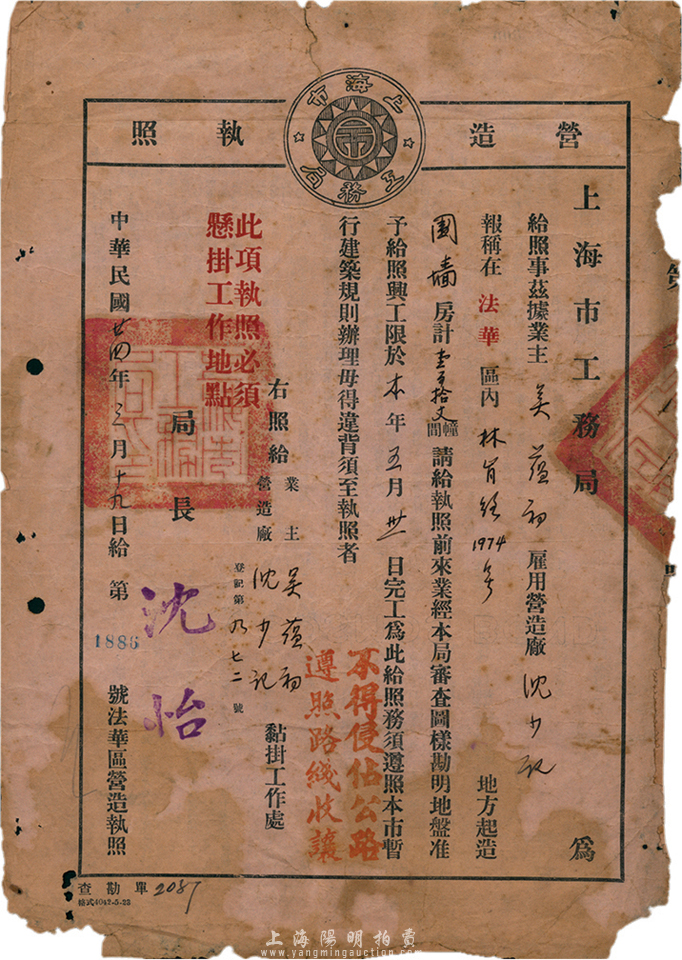 上海市
工務局
營造執照
上海市工務局 為
給照事茲據業主 吳蘊初 雇用營造廠 沈少記
報稱在 法華 區內 林肯路1974号 地方起造
圍墻 房計 幢間 請給執照前來業經本局審查圖樣勘明地盤准
予給照興工限於 本 年 五 月 卅 日完工為此給照務須遵照本市暫
行建築規則辦理毋得違背須至執照者
右照給
業主 吳蘊初
營造廠 沈少記
登記第 九七二 號
黏掛工作處
不得侵佔公路
遵照路綫收讓
此項執照必須
懸掛工作地點
局長 沈怡
中華民國廿四年三月十九日給 第 1886 號法華區營造執照
查勘單2087
格式4042-5-23
上海陽明拍賣
www.yangmingauction.com